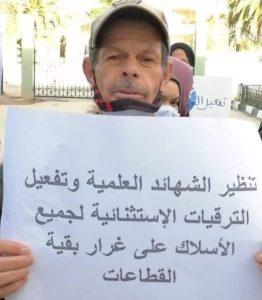 تفعيل ال
تنظير الشهائد العلمية وتفعيل
الترقيات الإستثنائية لجميع
الأسلاك على غرار بقية
القطاعات